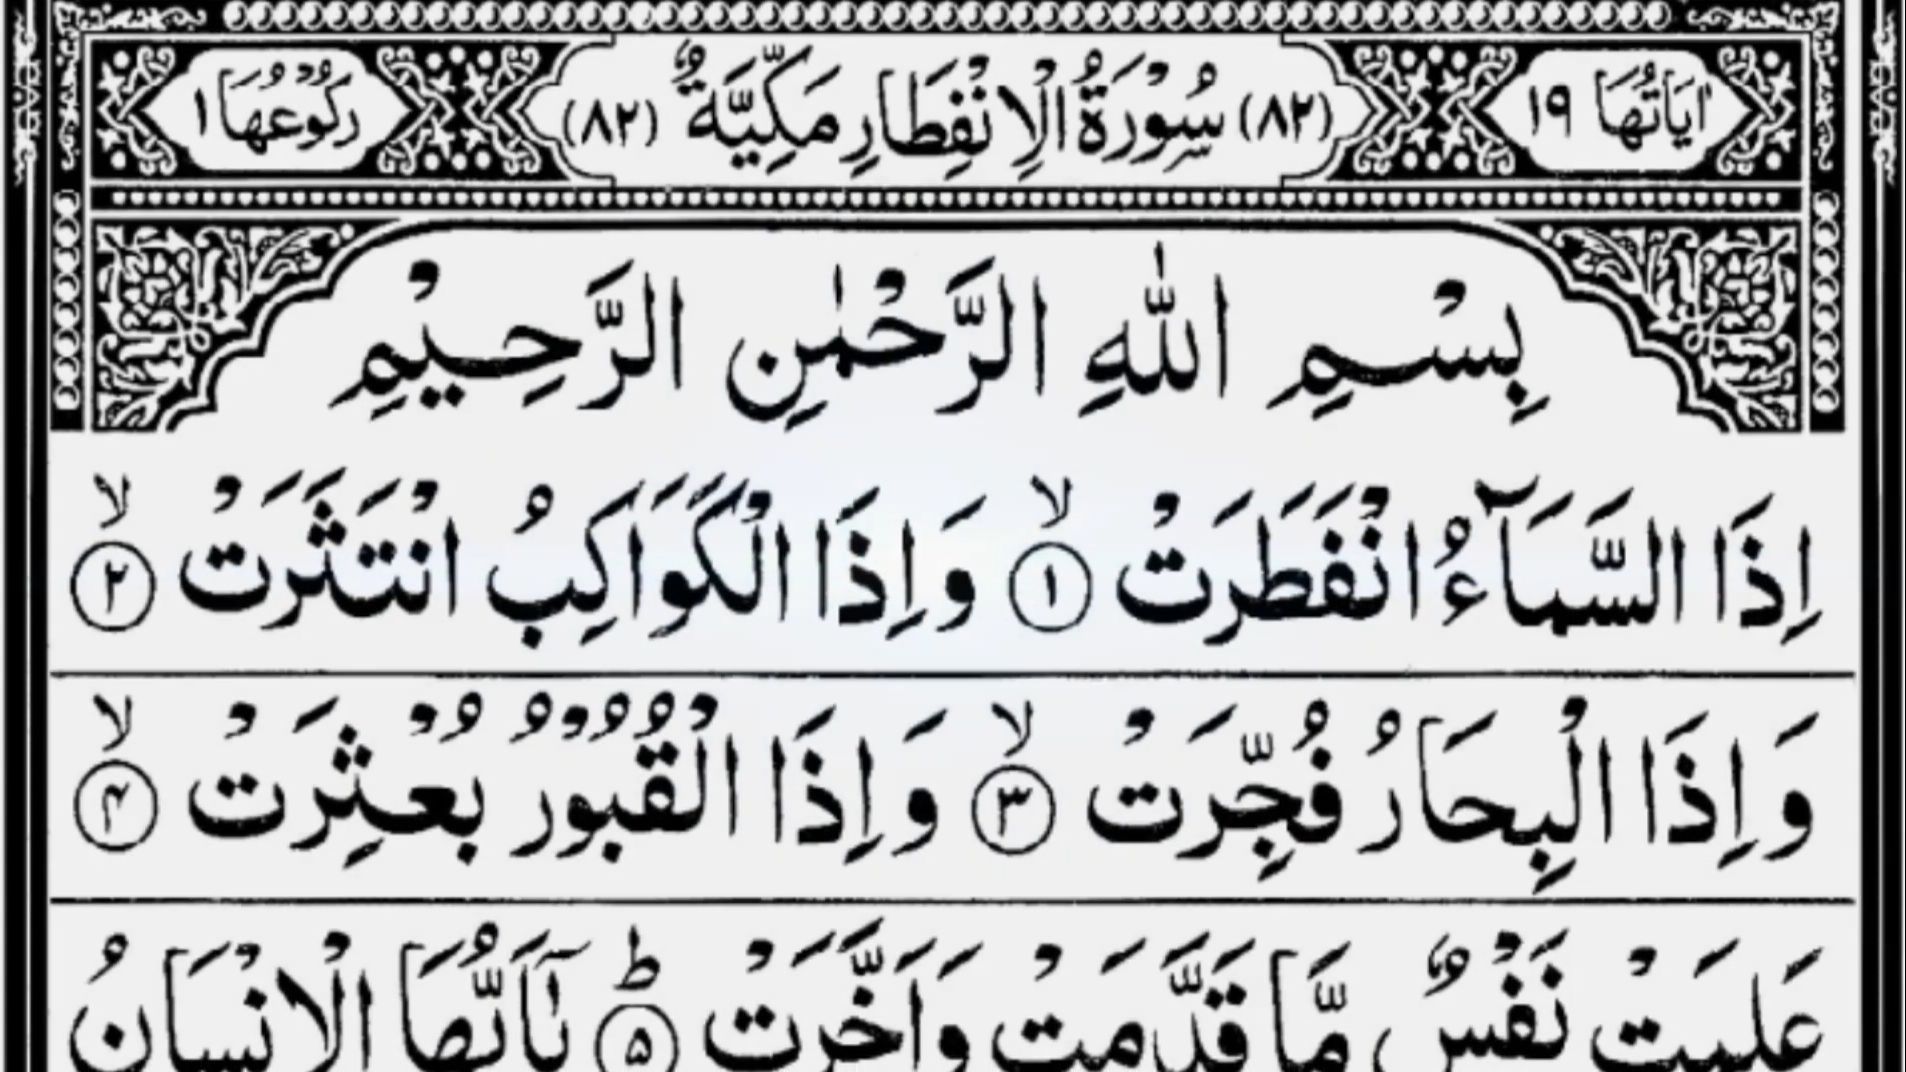 اٰيَاتُهَا ١٩ (٨٢) سُوْرَةُ الْاِنْفِطَارِ مَكِّيَّةٌ (٨٢) رُكُوْعُهَا ١
بِسْمِ اللّٰهِ الرَّحْمٰنِ الرَّحِيْمِ
اِذَا السَّمَآءُ انْفَطَرَتْ ۙ ١ وَاِذَا الْكَوَاكِبُ انْتَثَرَتْ ۙ ٢
وَاِذَا الْبِحَارُ فُجِّرَتْ ۙ ٣ وَاِذَا الْقُبُوْرُ بُعْثِرَتْ ۙ ٤
عَلِمَتْ نَفْسٌ مَّا قَدَّمَتْ وَاَخَّرَتْ ؕ ٥ يٰٓاَيُّهَا الْاِنْسَانُ